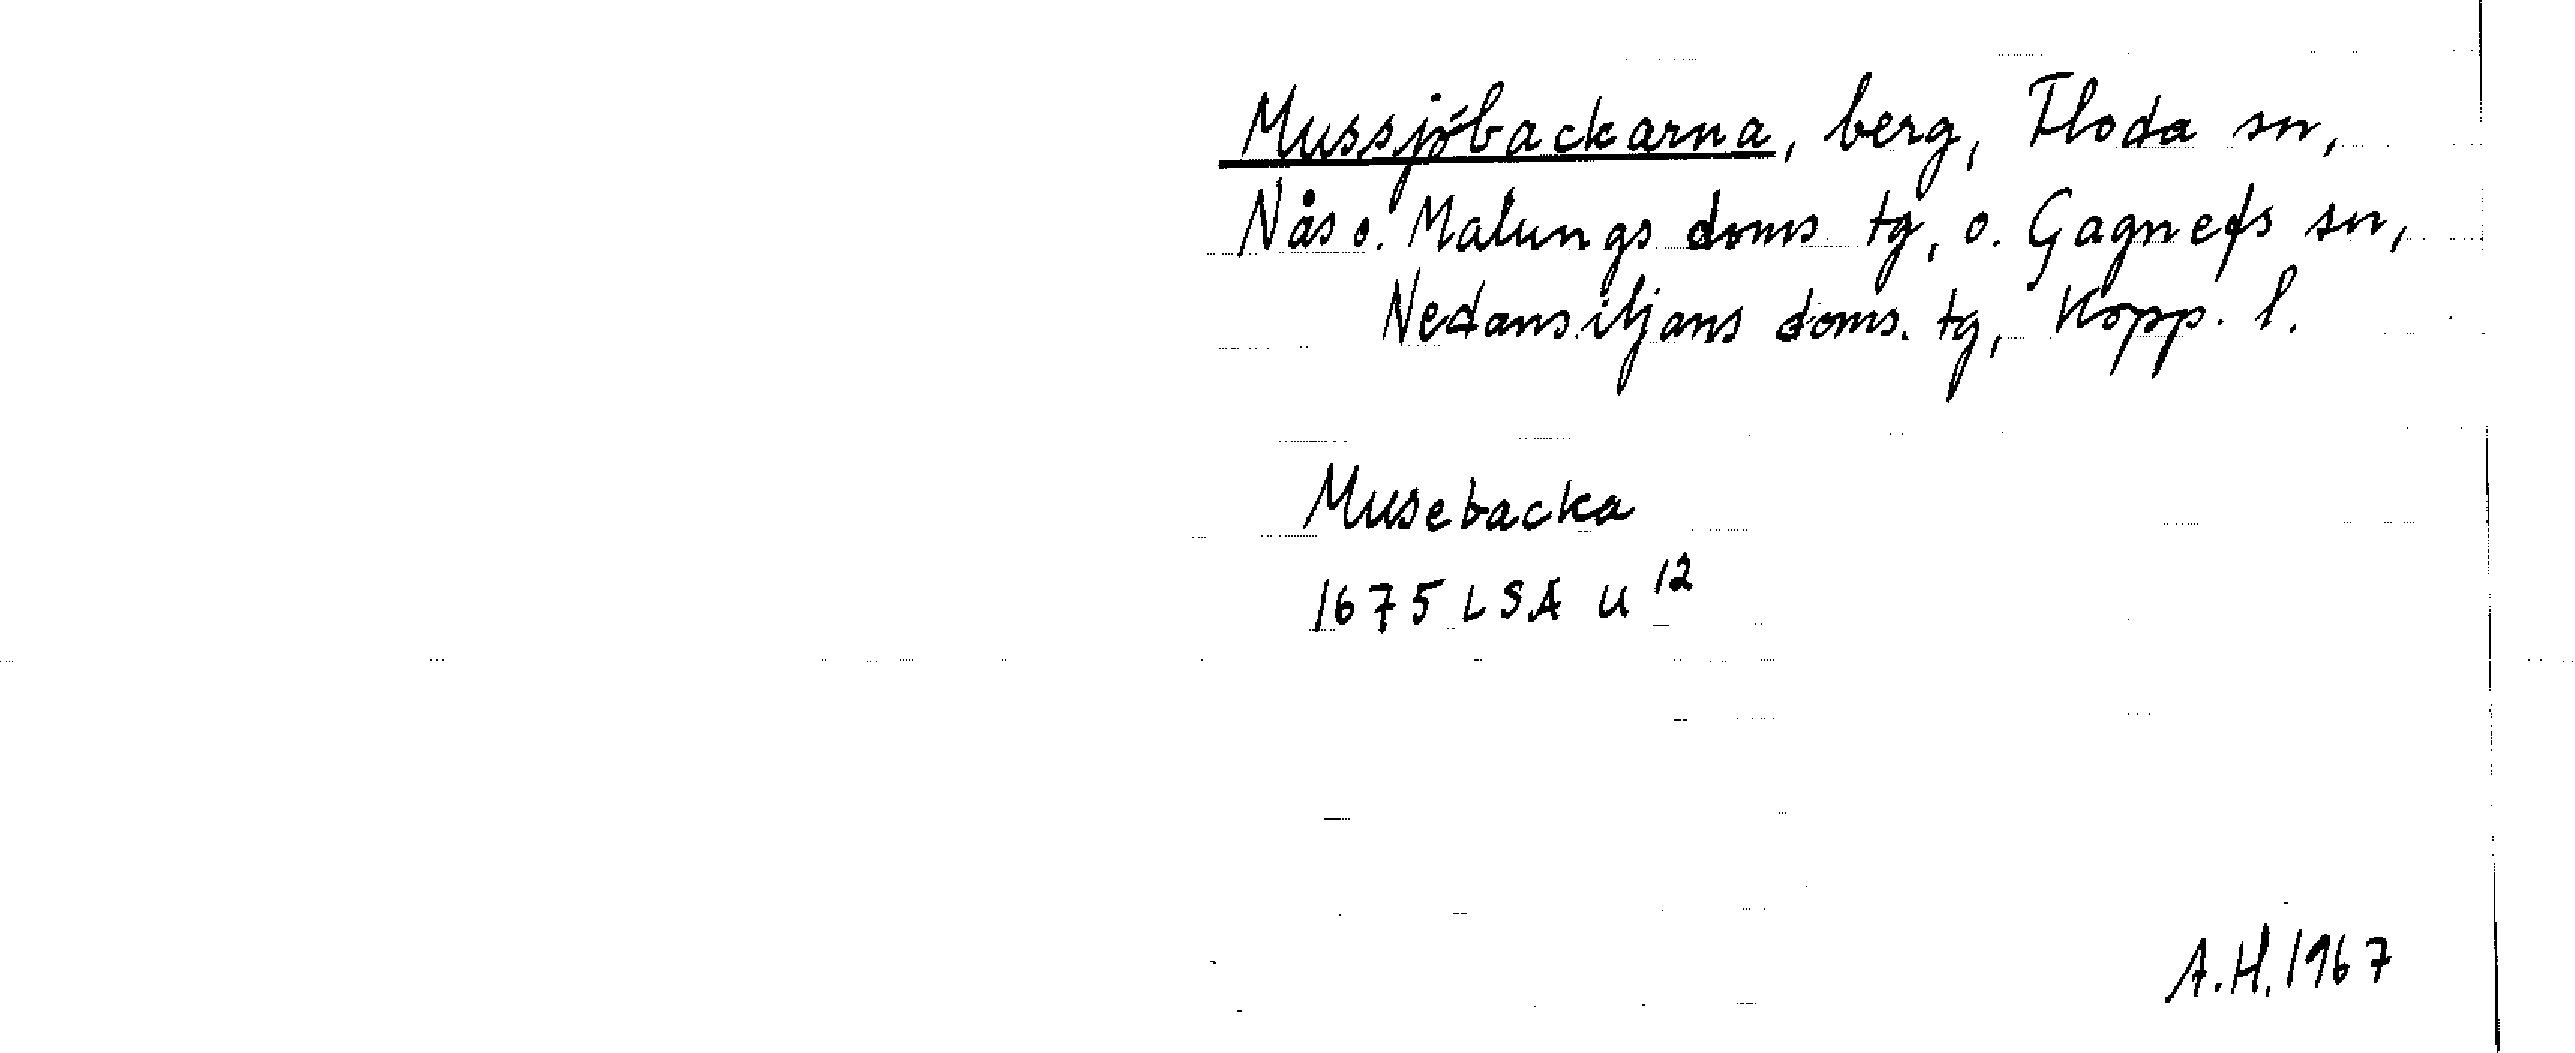 Mussjöbackarna, berg, Floda sn,
Nås o. Malungs doms tg, o. Gagnefs sn,
Nedansiljans doms. tg, Kopp. l.
Musebacka
1675 LSA U 12
A.H. 1967